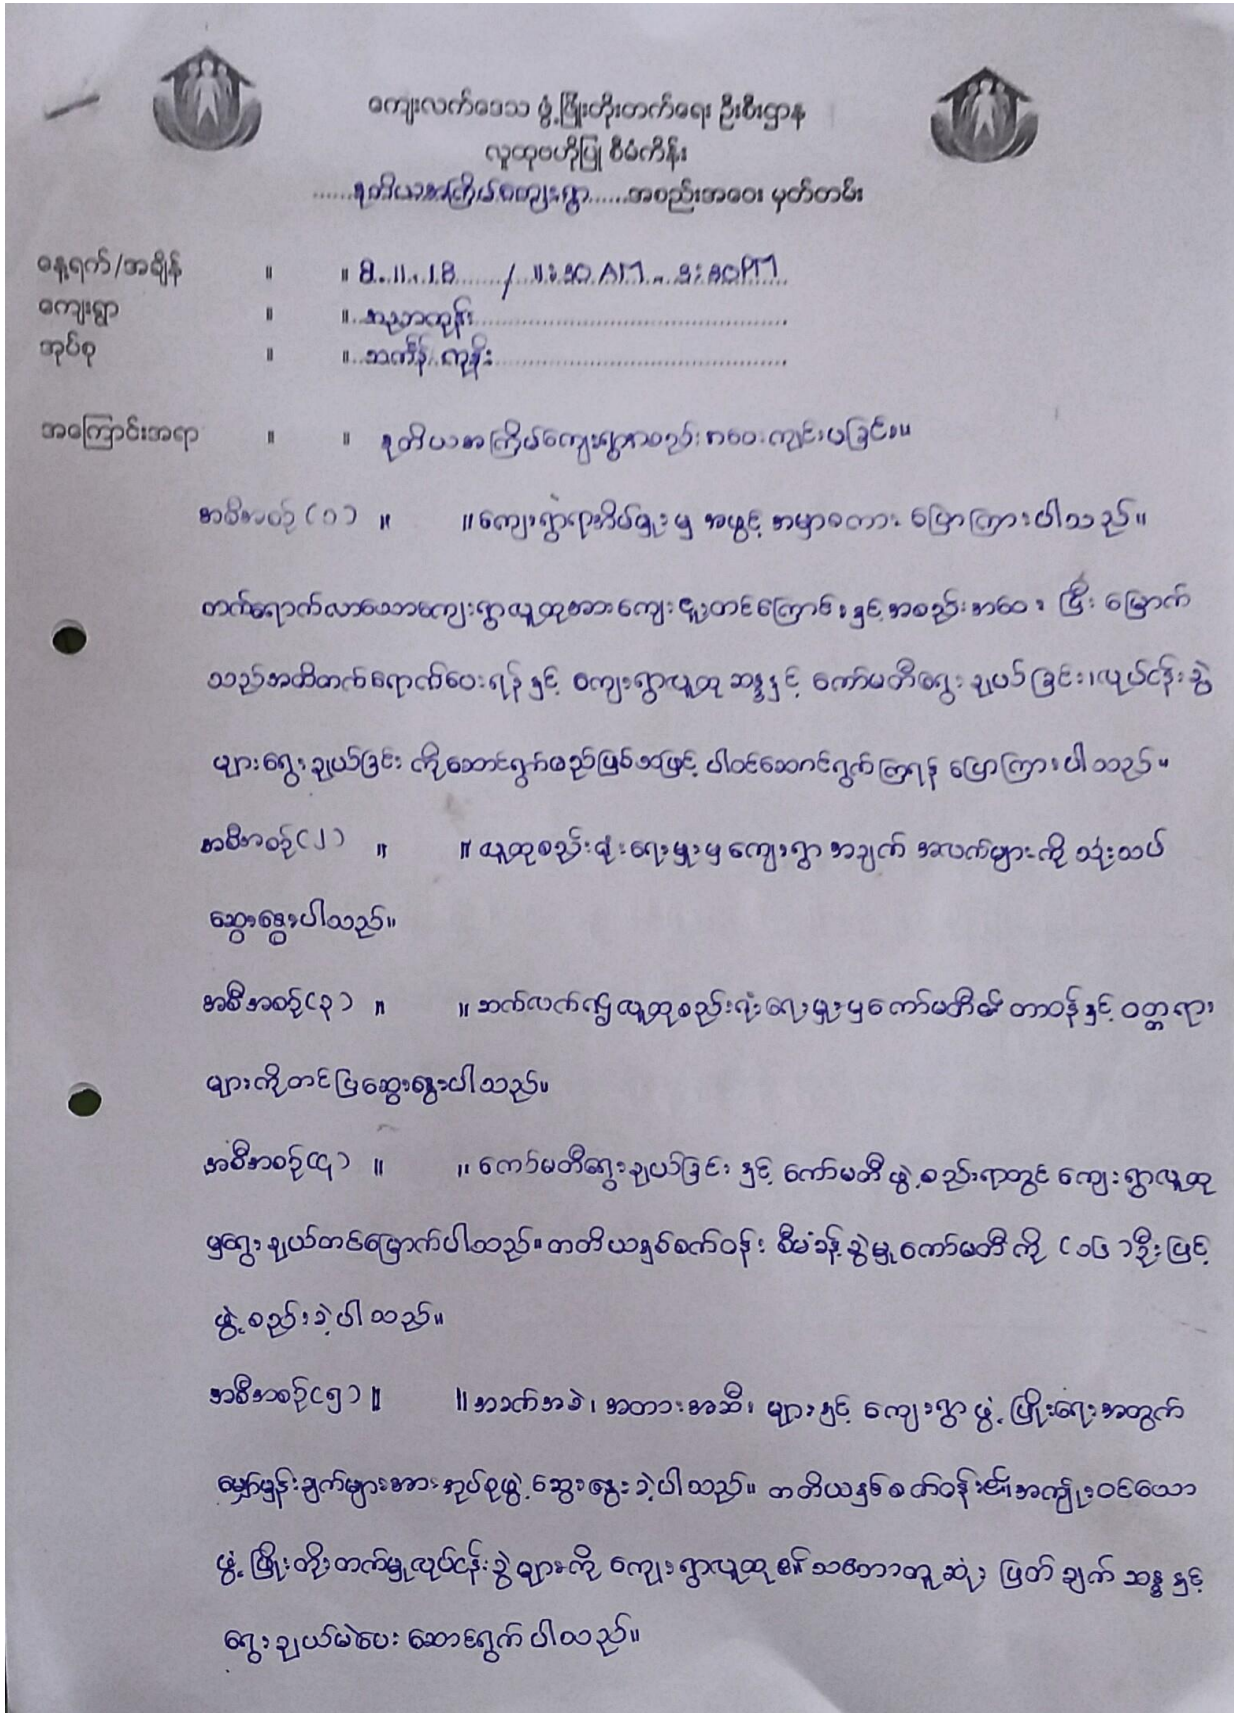 ကျေးလက်ဒေသ ဖွံ့ဖြိုးတိုးတက်ရေး ဦးစီးဌာန
လူထုဗဟိုပြု စီမံကိန်း
......ဒုတိယအကြိမ်ကျေးရွာ......အစည်းအဝေး မှတ်တမ်း
နေ့ရက်/အချိန် ။ ။ 8.11.18 / 11:30 AM - 3:30PM
ကျေးရွာ ။ ။
အုပ်စု ။ ။ ကုန်း
အကြောင်းအရာ ။ ။ ဒုတိယအကြိမ်ကျေးရွာအစည်းအဝေးကျင်းပခြင်း။
အစီအစဉ်(၁) ။ ။ ကျေးရွာရာအိမ်မှူးမှ အဖွင့် အမှာစကား ပြောကြားပါသည်။
တက်ရောက်လာသောကျေးရွာလူထုအားကျေးဇူးတင်ကြောင်းနှင့်အစည်းအဝေး ပြီးမြောက်
သည်အထိတက်ရောက်ပေးရန်နှင့် ကျေးရွာလူထု ဆန္ဒနှင့် ကော်မတီရွေးချယ်ခြင်း၊လုပ်ငန်းခွဲ
များရွေးချယ်ခြင်း ကိုဆောင်ရွက်မည်ဖြစ်သဖြင့် ပါဝင်ဆောင်ရွက်ကြရန် ပြောကြားပါသည်။
အစီအစဉ်(၂) ။ ။ လူထုစည်းရုံးရေးမှူးမှ ကျေးရွာ အချက် အလက်များကို သုံးသပ်
ဆွေးနွေးပါသည်။
အစီအစဉ်(၃) ။ ။ ဆက်လက်၍လူထုစည်းရုံးရေးမှူးမှကော်မတီ၏ တာဝန်နှင့် ဝတ္တရား
များကိုတင်ပြဆွေးနွေးပါသည်။
အစီအစဉ်(၄) ။ ။ ကော်မတီရွေးချယ်ခြင်း နှင့် ကော်မတီဖွဲ့စည်းရာတွင် ကျေးရွာလူထု
မှရွေးချယ်တင်မြှောက်ပါသည်။တတိယနှစ်စက်ဝန်း စီမံခန့်ခွဲမှုကော်မတီကို (၁၆)ဦးဖြင့်
ဖွဲ့စည်းခဲ့ပါသည်။
အစီအစဉ်(၅) ။ ။ အခက်အခဲ၊ အတားအဆီး များနှင့် ကျေးရွာ ဖွံ့ဖြိုးရေးအတွက်
မျှော်မှန်းချက်များအားအုပ်စုဖွဲ့ဆွေးနွေးခဲ့ပါသည်။ တတိယနှစ်စက်ဝန်း၏အကျုံးဝင်သော
ဖွံ့ဖြိုးတိုးတက်မှုလုပ်ငန်းခွဲများကို ကျေးရွာလူထု၏သဘောတူဆုံးဖြတ်ချက် ဆန္ဒနှင့်
ရွေးချယ်မဲပေး ဆောင်ရွက်ပါသည်။